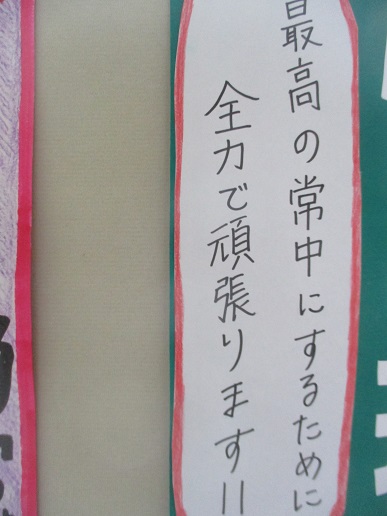 最高の常中にするために
全力で頑張ります!!